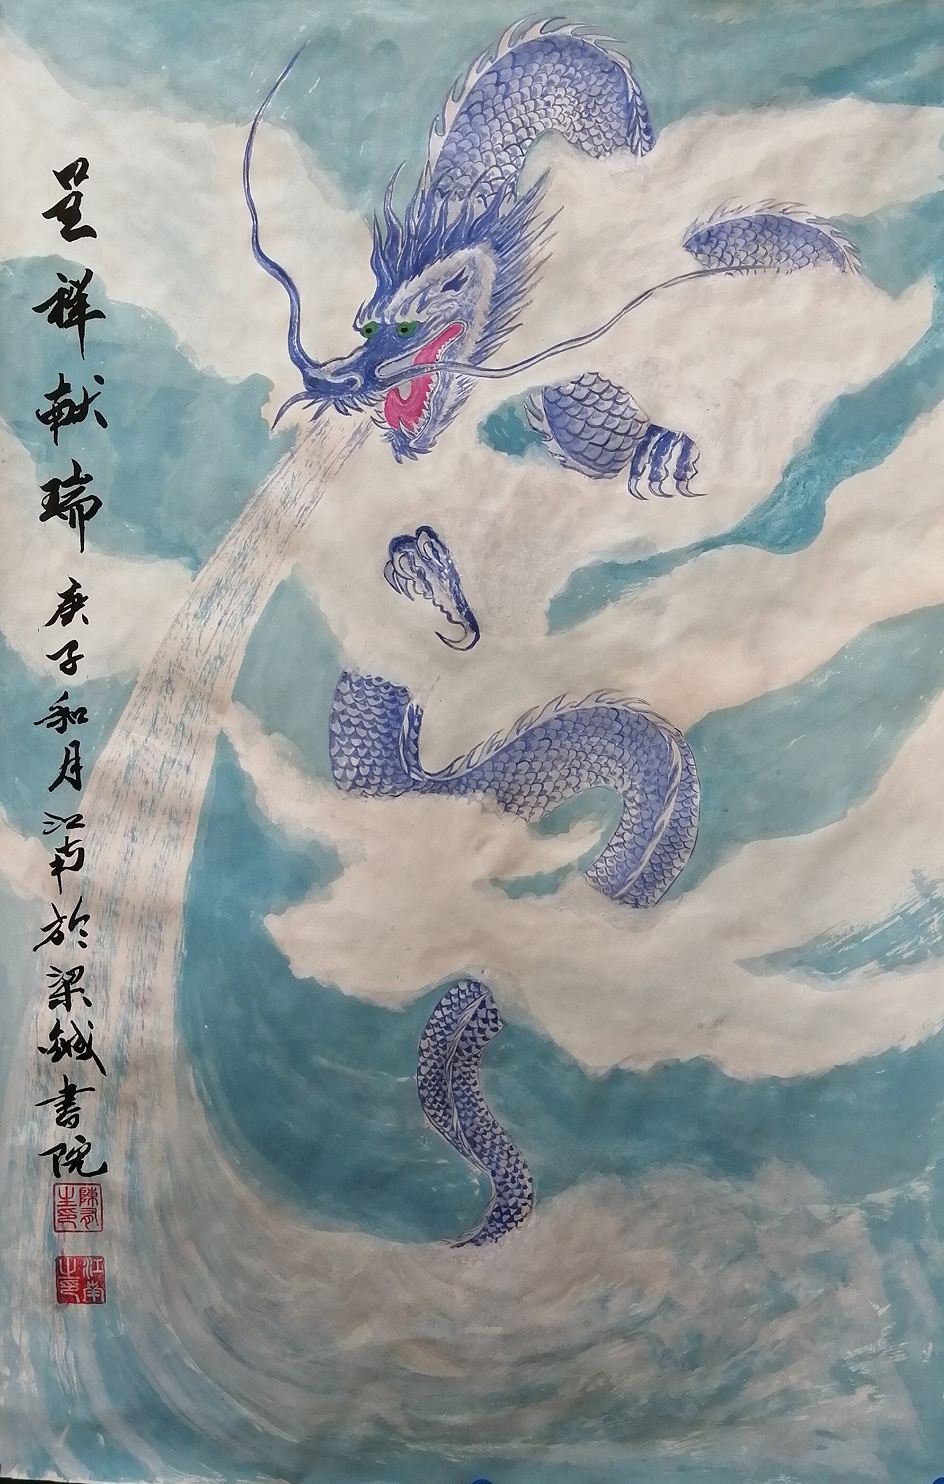 呈祥献瑞 庚子和月江南於梁書院
江南之印